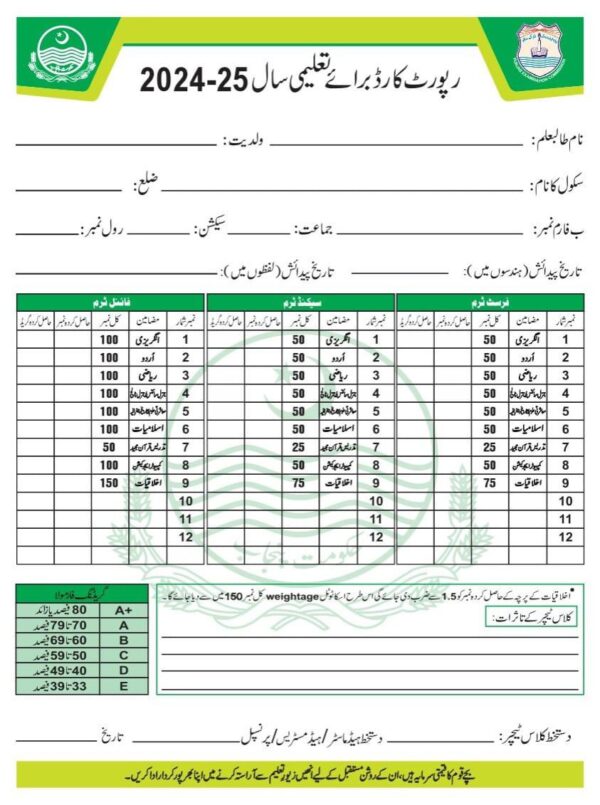 رپورٹ کارڈ برائے تعلیمی سال 2024-25
نام طالبعلم: ولدیت:
سکول کا نام: ضلع:
ب فارم نمبر: جماعت: سیکشن: رول نمبر:
تاریخ پیدائش (ہندسوں میں): تاریخ پیدائش (لفظوں میں):
فرسٹ ٹرم
نمبر شمار مضامین کل نمبر حاصل کردہ نمبر حاصل کردہ گریڈ
1 انگریزی 50
2 اُردو 50
3 ریاضی 50
4 50
5 50
6 اسلامیات 50
7 تدریس قرآن مجید 25
8 کمپیوٹر ایجوکیشن 50
9 اخلاقیات 75
10
11
12
سیکنڈ ٹرم
نمبر شمار مضامین کل نمبر حاصل کردہ نمبر حاصل کردہ گریڈ
1 انگریزی 50
2 اُردو 50
3 ریاضی 50
4 50
5 50
6 اسلامیات 50
7 تدریس قرآن مجید 25
8 کمپیوٹر ایجوکیشن 50
9 اخلاقیات 75
10
11
12
فائنل ٹرم
نمبر شمار مضامین کل نمبر حاصل کردہ نمبر حاصل کردہ گریڈ
1 انگریزی 100
2 اُردو 100
3 ریاضی 100
4 100
5 100
6 اسلامیات 100
7 تدریس قرآن مجید 50
8 کمپیوٹر ایجوکیشن 100
9 اخلاقیات 150
10
11
12
حکومت پنجاب
* اخلاقیات کے پرچہ کے حاصل کردہ نمبر کو 1.5 سے ضرب دی جائے گی اس طرح اسکا ٹوٹل weightage کل نمبر 150 میں سے دیا جائے گا۔
کلاس ٹیچر کے تاثرات:
گریڈنگ فارمولا
A+ 80 فیصد یا زائد
A 70 تا 79 فیصد
B 60 تا 69 فیصد
C 50 تا 59 فیصد
D 40 تا 49 فیصد
E 33 تا 39 فیصد
دستخط کلاس ٹیچر: دستخط ہیڈ ماسٹر/ہیڈ مسٹریس/پرنسپل تاریخ
بچے قوم کا قیمتی سرمایہ ہیں، ان کے روشن مستقبل کے لیے انھیں زیورِ تعلیم سے آراستہ کرنے میں اپنا بھرپور کردار ادا کریں۔